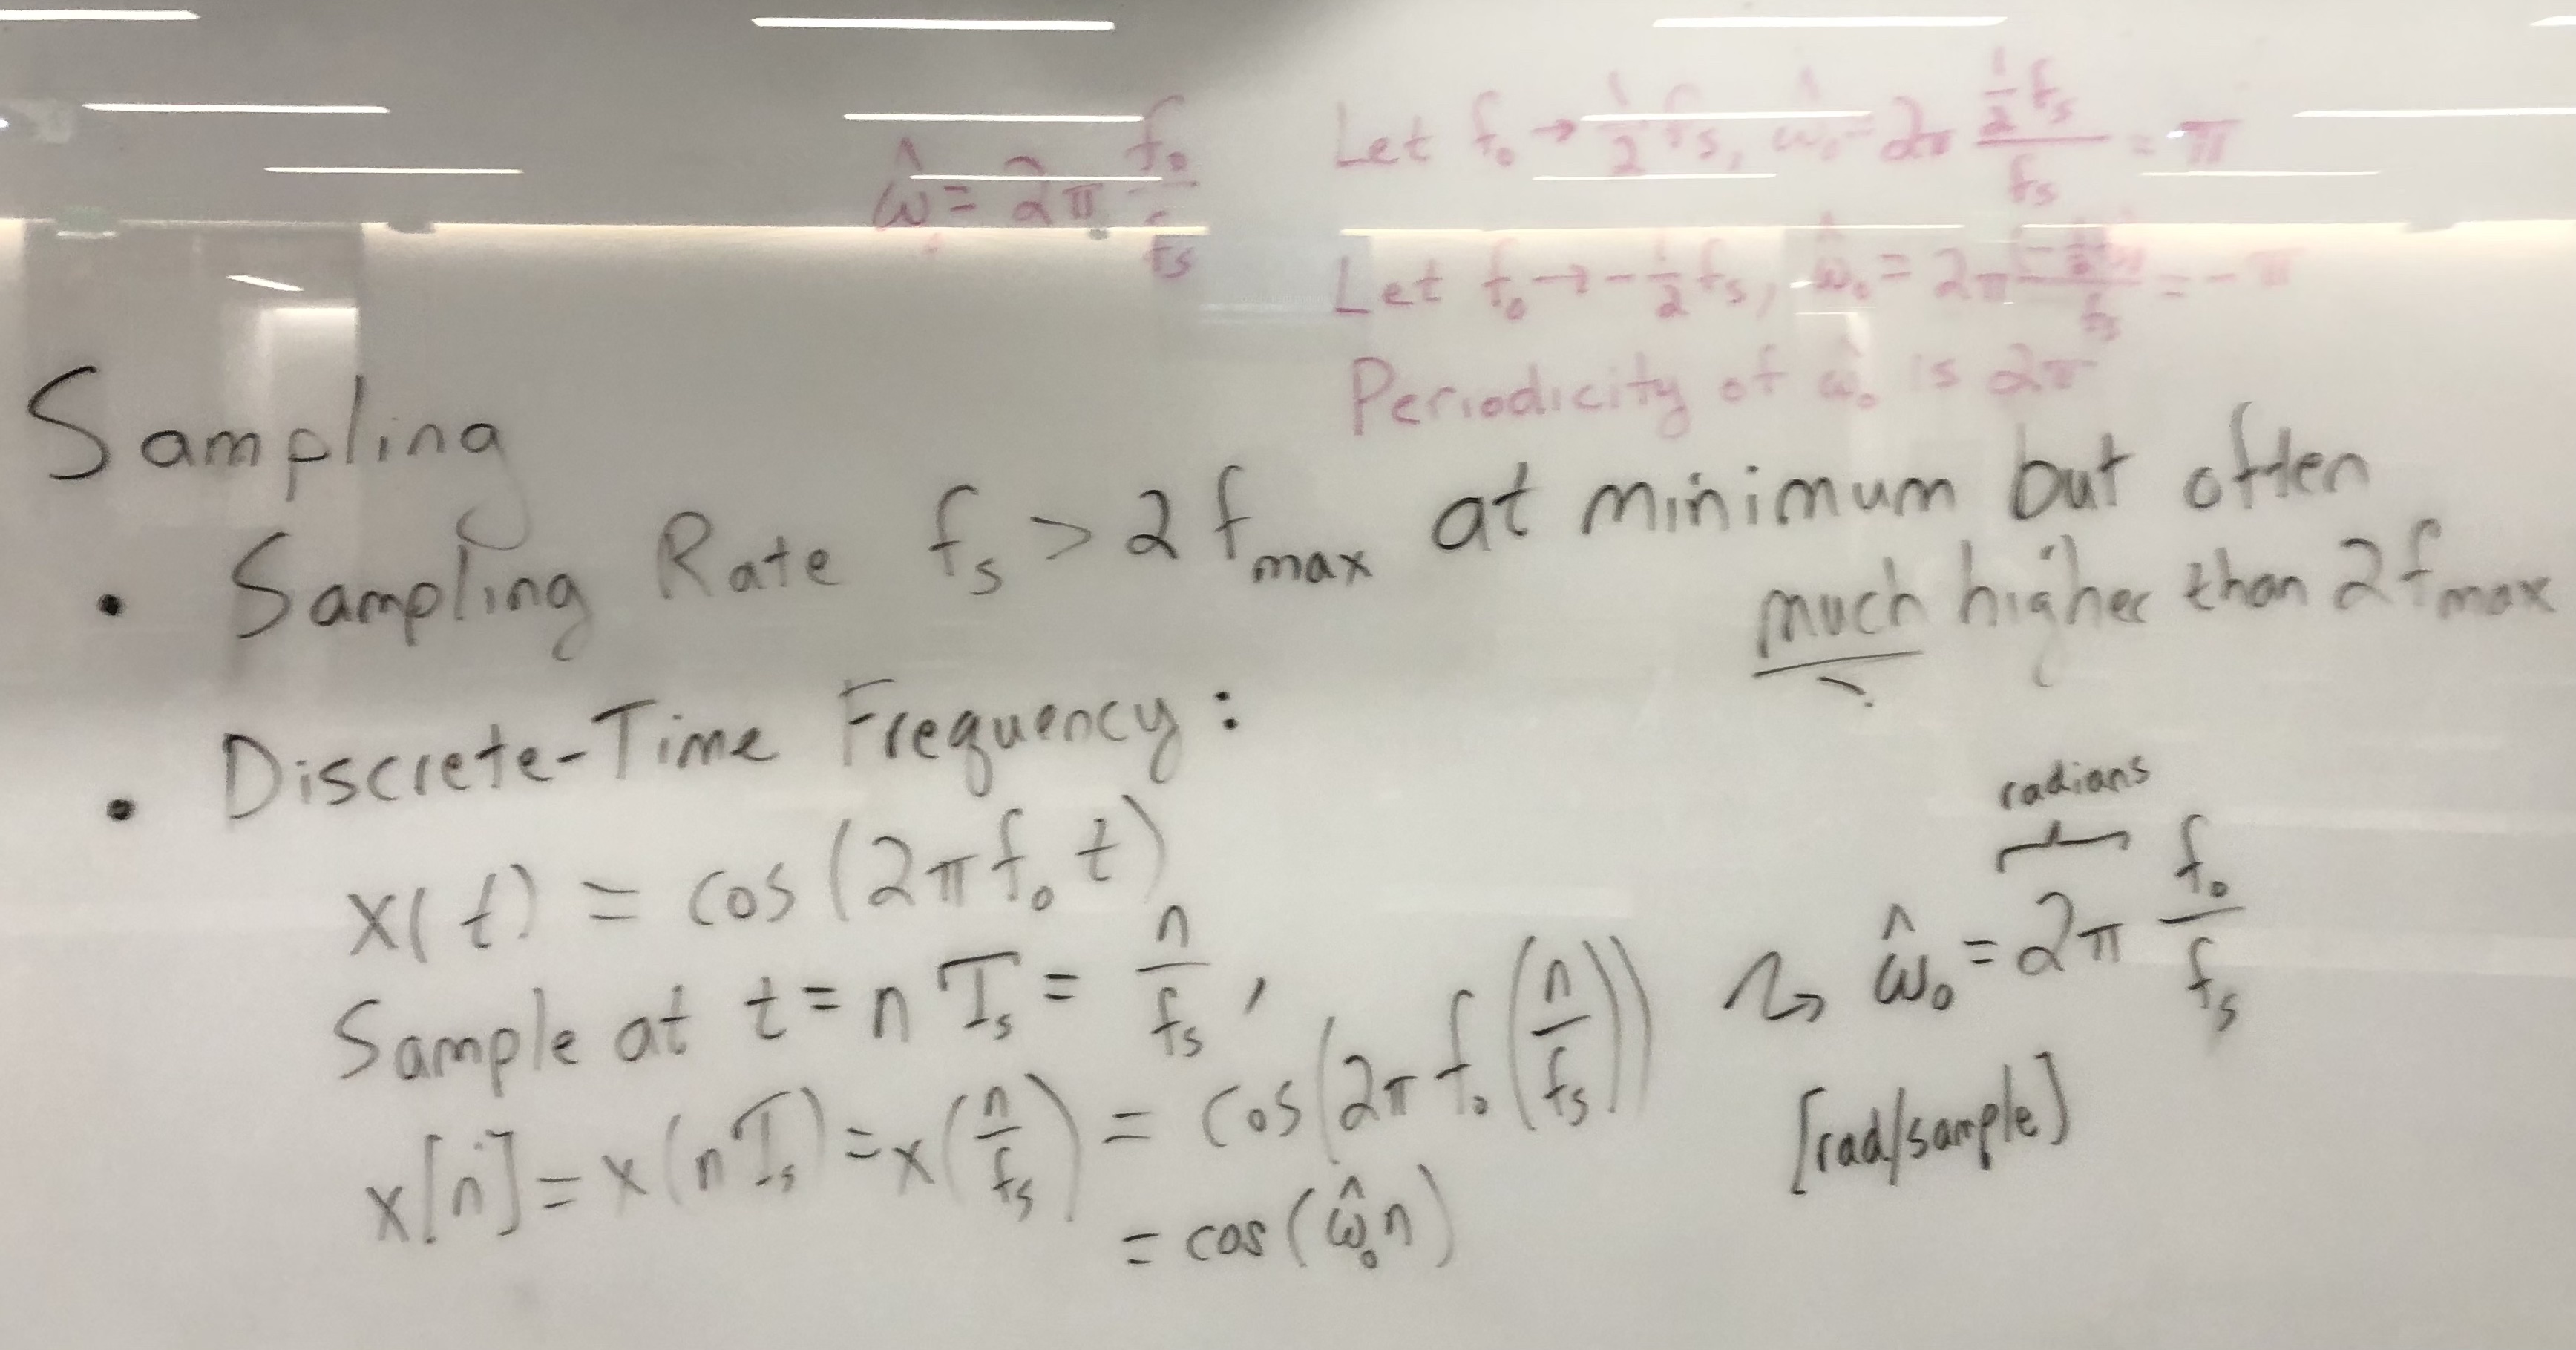 ω̂₀ = 2π f₀/fₛ
Let f₀ → ½ fₛ, ω̂₀ = 2π (½ fₛ)/fₛ = π
Let f₀ → -½ fₛ, ω̂₀ = 2π (-½ fₛ)/fₛ = -π
Periodicity of ω̂₀ is 2π
Sampling
• Sampling Rate fₛ > 2 f_max at minimum but often
much higher than 2 f_max
• Discrete-Time Frequency:
radians
x(t) = cos(2π f₀ t)
Sample at t = n Tₛ = n/fₛ,
ω̂₀ = 2π f₀/fₛ
x[n] = x(n Tₛ) = x(n/fₛ) = cos(2π f₀ (n/fₛ))
[rad/sample]
= cos(ω̂₀ n)